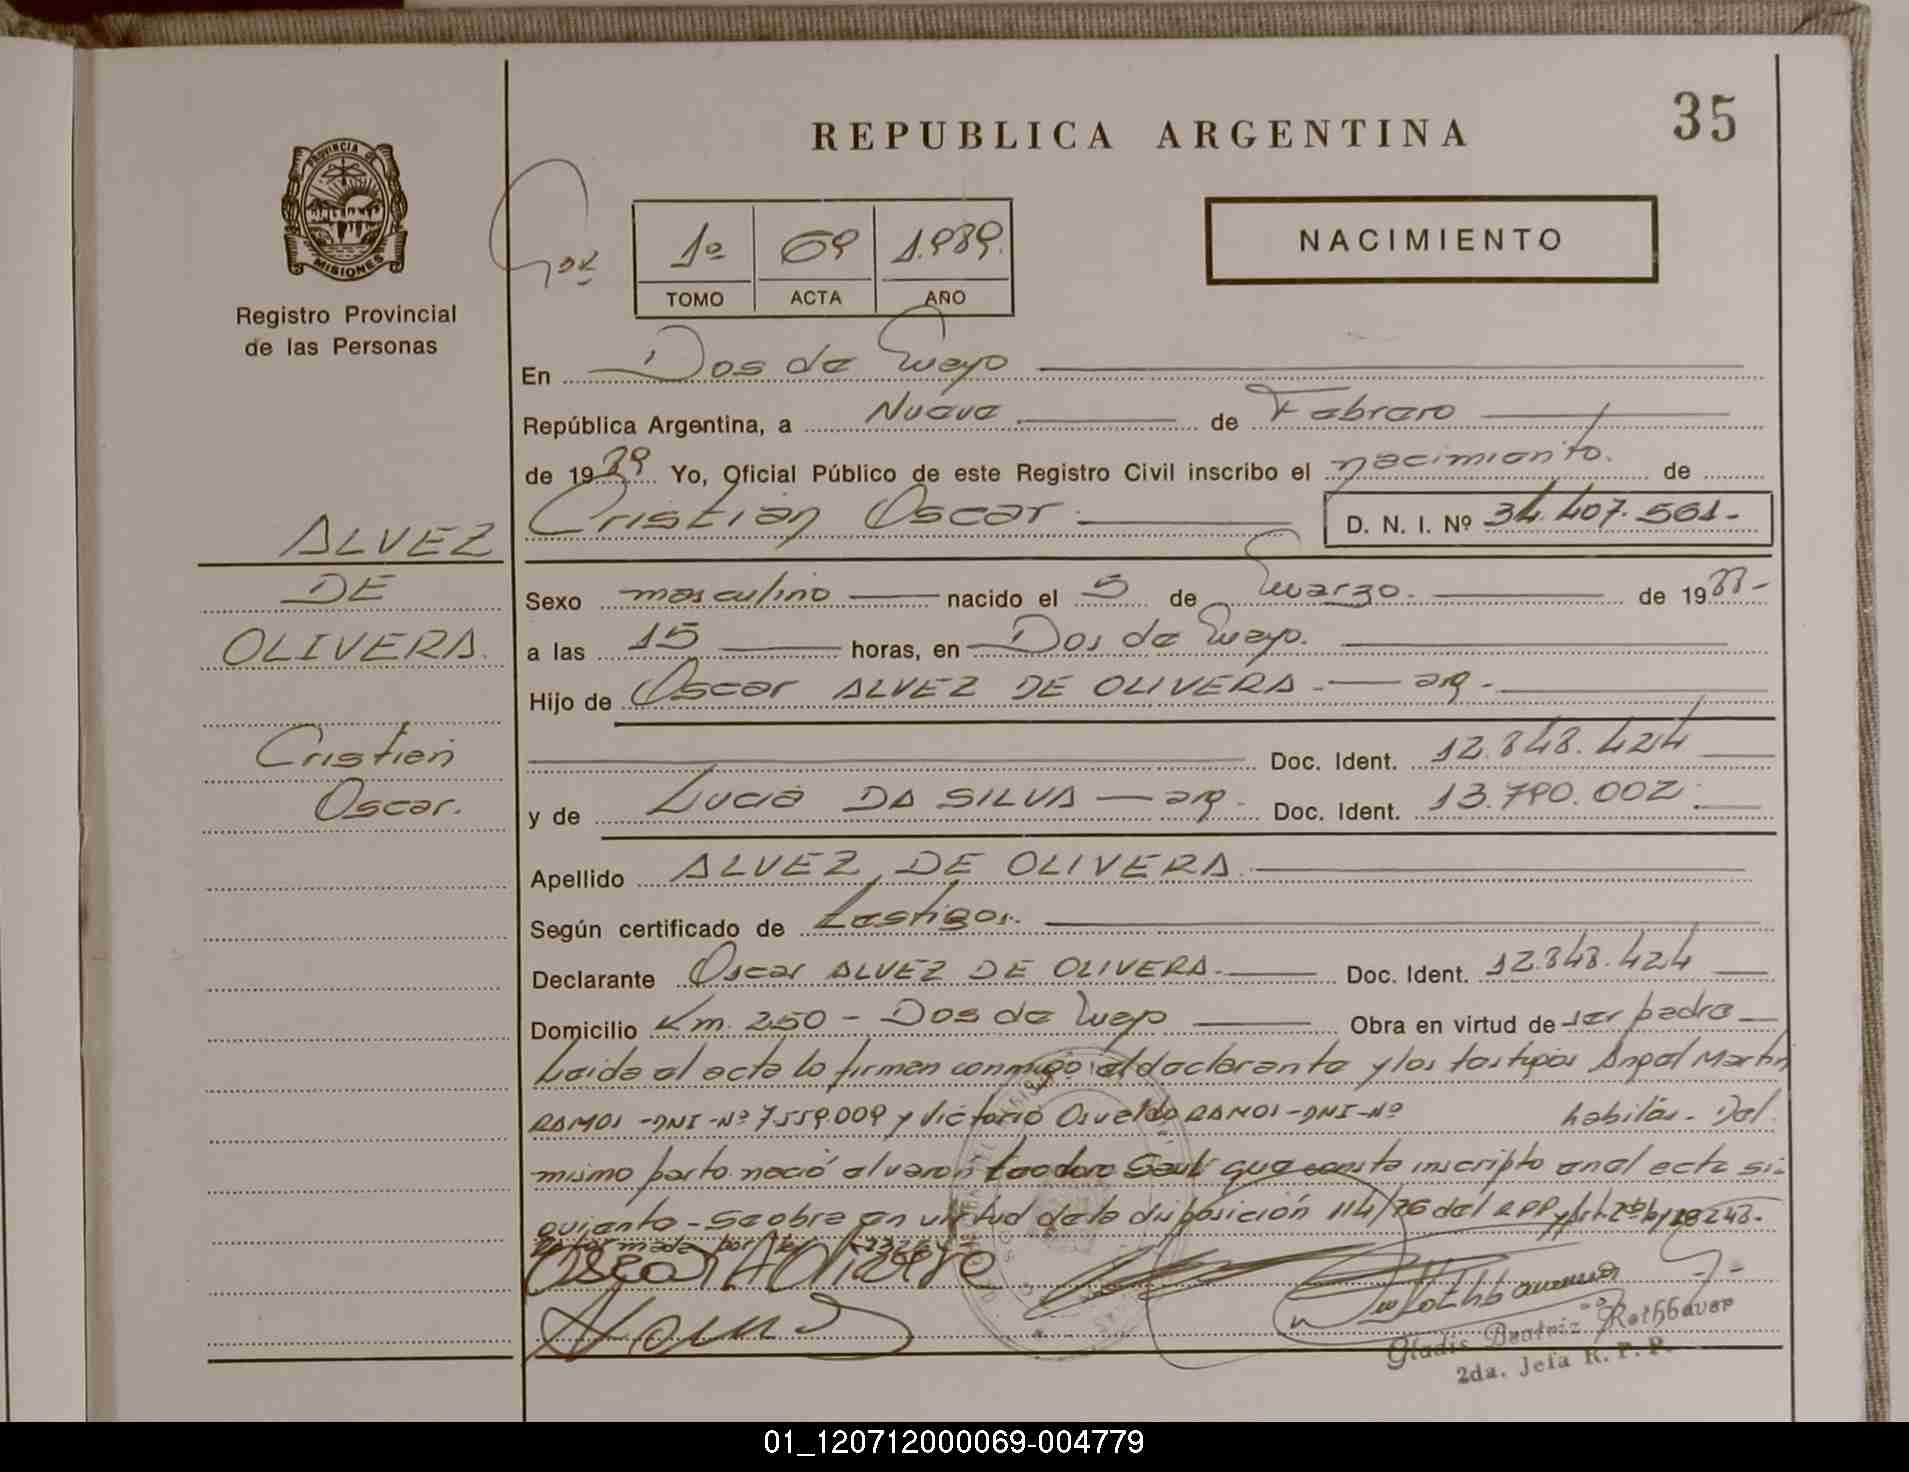 35
REPUBLICA ARGENTINA
PROVINCIA DE
MISIONES
Registro Provincial
de las Personas
1º 69 1.989.
TOMO ACTA AÑO
NACIMIENTO
En Dos de Mayo
República Argentina, a Nueve de Febrero
de 1989 Yo, Oficial Público de este Registro Civil inscribo el nacimiento. de
Cristian Oscar. D. N. I. Nº 34.407.561-
ALVEZ
DE
OLIVERA.
Cristian
Oscar.
Sexo masculino nacido el 5 de Marzo. de 1988-
a las 15 horas, en Dos de Mayo.
Hijo de Oscar ALVEZ DE OLIVERA - arg -
Doc. Ident. 12.848.424
y de Lucia DA SILVA - arg. Doc. Ident. 13.790.002.
Apellido ALVEZ DE OLIVERA.
Según certificado de testigos.
Declarante Oscar ALVEZ DE OLIVERA. Doc. Ident. 12.848.424
Domicilio Km. 250 - Dos de Mayo Obra en virtud de ser padre
Leida el acta lo firman conmigo el declarante y los testigos Angel Martin
RAMOS - DNI - Nº 7.559.009 y Victorio Osvaldo RAMOS - DNI - Nº habiles. Del
mismo parto nació el varon Teodoro que consta inscripto en el acta si-
guiente - Se obra en virtud de la disposición 114/76 del RPP y Art. 18248.
Gladis Beatriz Rothbauer
2da. Jefa R. P. P.
01_120712000069-004779